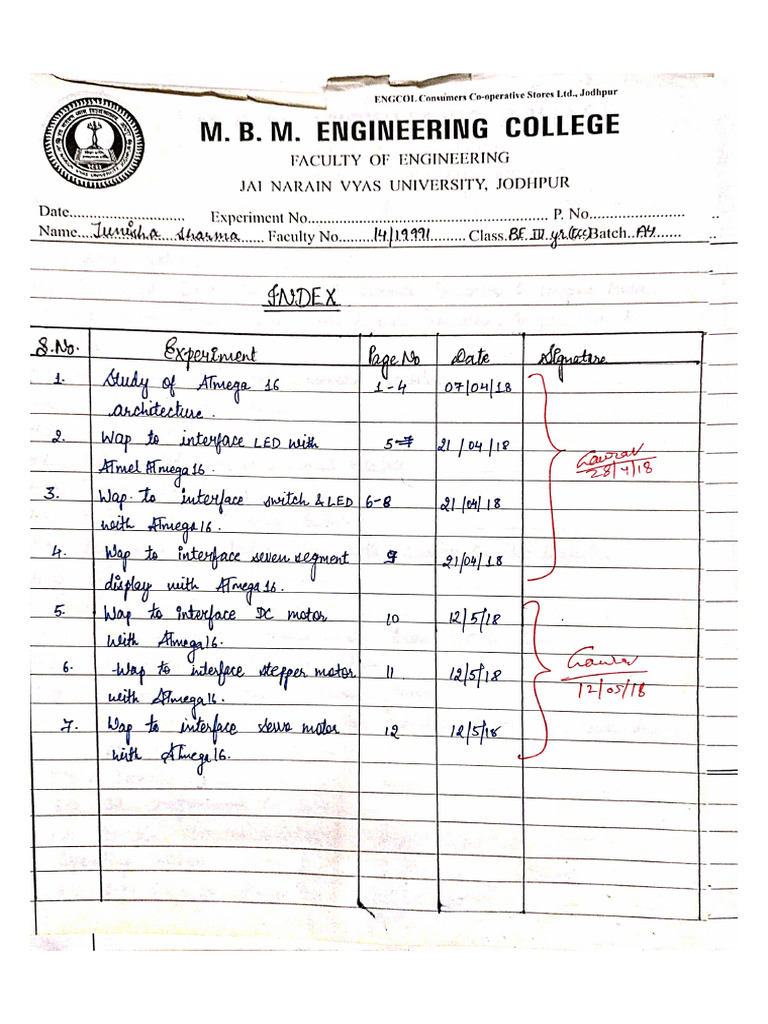 ENGCOL Consumers Co-operative Stores Ltd., Jodhpur
M. B. M. ENGINEERING COLLEGE
FACULTY OF ENGINEERING
JAI NARAIN VYAS UNIVERSITY, JODHPUR
Date............................ Experiment No............................................................ P. No........................
Name....Tunisha Sharma...... Faculty No.........14/19991......... Class.BE III yr(Ecc)Batch..A4......
INDEX
S.No. Experiment Page No Date Signature
1. Study of ATmega 16 1-4 07/04/18
architecture.
2. Wap to interface LED with 5 21/04/18
Atmel ATmega16.
Gaurav
28/4/18
3. Wap. to interface switch & LED 6-8 21/04/18
with ATmega16.
4. Wap to interface seven segment 9 21/04/18
display with ATmega16.
5. Wap to interface DC motor 10 12/5/18
with ATmega16.
6. Wap to interface stepper motor 11. 12/5/18
with ATmega16.
Gaurav
12/05/18
7. Wap to interface servo motor 12 12/5/18
with ATmega16.